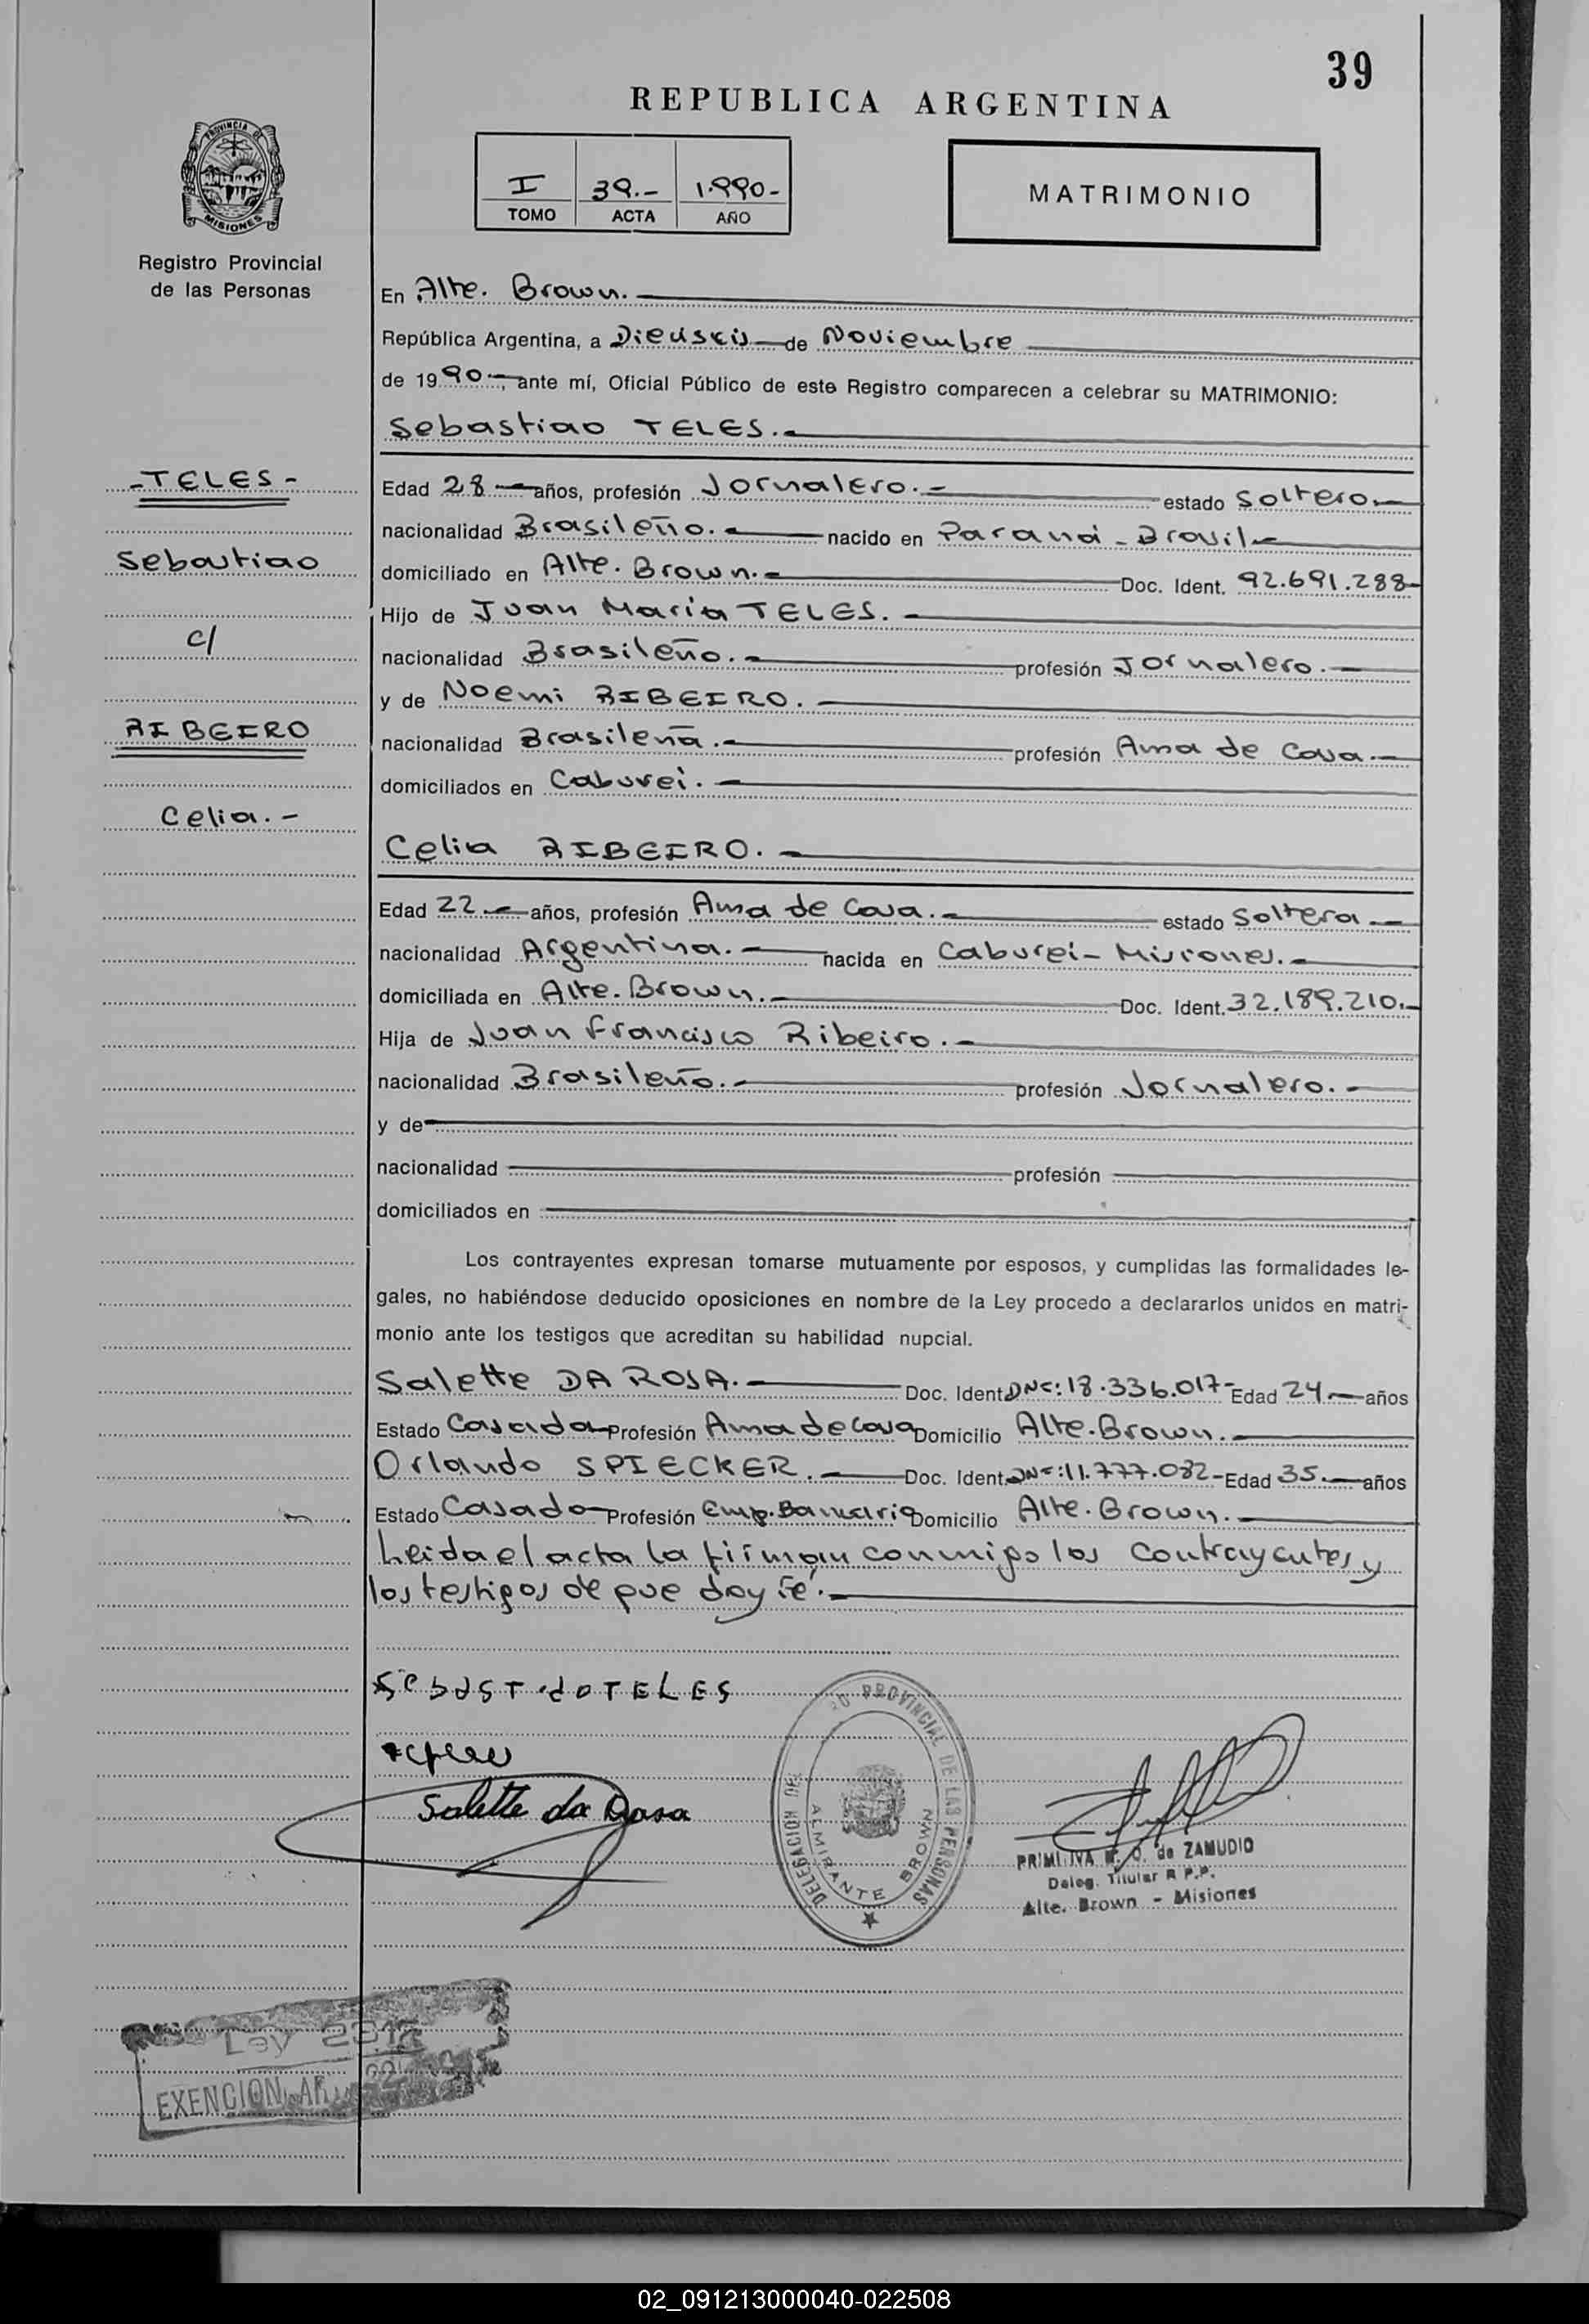 39
REPUBLICA ARGENTINA
PROVINCIA DE
MISIONES
I 39.- 1.990-
TOMO ACTA AÑO
MATRIMONIO
Registro Provincial
de las Personas
En Alte. Brown.
República Argentina, a Dieciseis de Noviembre
de 1990.-, ante mí, Oficial Público de este Registro comparecen a celebrar su MATRIMONIO:
Sebastiao TELES.-
-TELES-
Sebastiao
c/
RIBEIRO
Celia.-
Edad 28 años, profesión Jornalero.- estado Soltero.-
nacionalidad Brasileño.- nacido en Paraná - Brasil.-
domiciliado en Alte. Brown.- Doc. Ident. 92.691.288-
Hijo de Juan María TELES.-
nacionalidad Brasileño.- profesión Jornalero.-
y de Noemi RIBEIRO.
nacionalidad Brasileña.- profesión Ama de Casa.-
domiciliados en Caburei.-
Celia RIBEIRO.-
Edad 22.- años, profesión Ama de Casa.- estado Soltera.-
nacionalidad Argentina.- nacida en Caburei - Misiones.-
domiciliada en Alte. Brown.- Doc. Ident. 32.189.210.-
Hija de Juan Francisco Ribeiro.-
nacionalidad Brasileño.- profesión Jornalero.-
y de
nacionalidad profesión
domiciliados en
Los contrayentes expresan tomarse mutuamente por esposos, y cumplidas las formalidades le-
gales, no habiéndose deducido oposiciones en nombre de la Ley procedo a declararlos unidos en matri-
monio ante los testigos que acreditan su habilidad nupcial.
Salette DA ROSA.- Doc. Ident. 18.336.017- Edad 24.- años
Estado Casada Profesión Ama de Casa Domicilio Alte. Brown.-
Orlando SPIECKER.- Doc. Ident. 11.777.082- Edad 35.- años
Estado Casado Profesión Emp. Bancario Domicilio Alte. Brown.-
Leida el acta la firman conmigo los contrayentes y
los testigos de que doy fé.-
SebasTiaoTELES
Salette da Rosa
PROVINCIAL DE LAS PERSONAS
DELEGACION DE
ALMIRANTE BROWN
PRIMITIVA M. O. de ZAMUDIO
Deleg. Titular R P.P.
Alte. Brown - Misiones
Ley
EXENCION
02_091213000040-022508